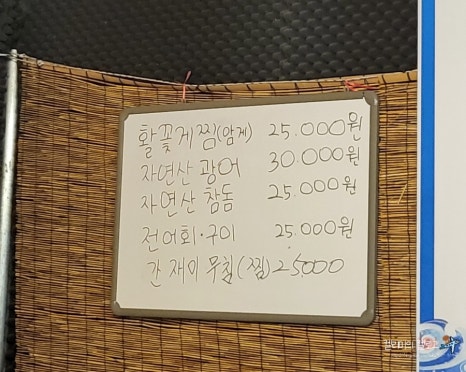 활꽃게찜(암게) 25.000원
자연산 광어 30.000원
자연산 참돔 25.000원
전어회·구이 25.000원
간재미 무침(찜) 25000